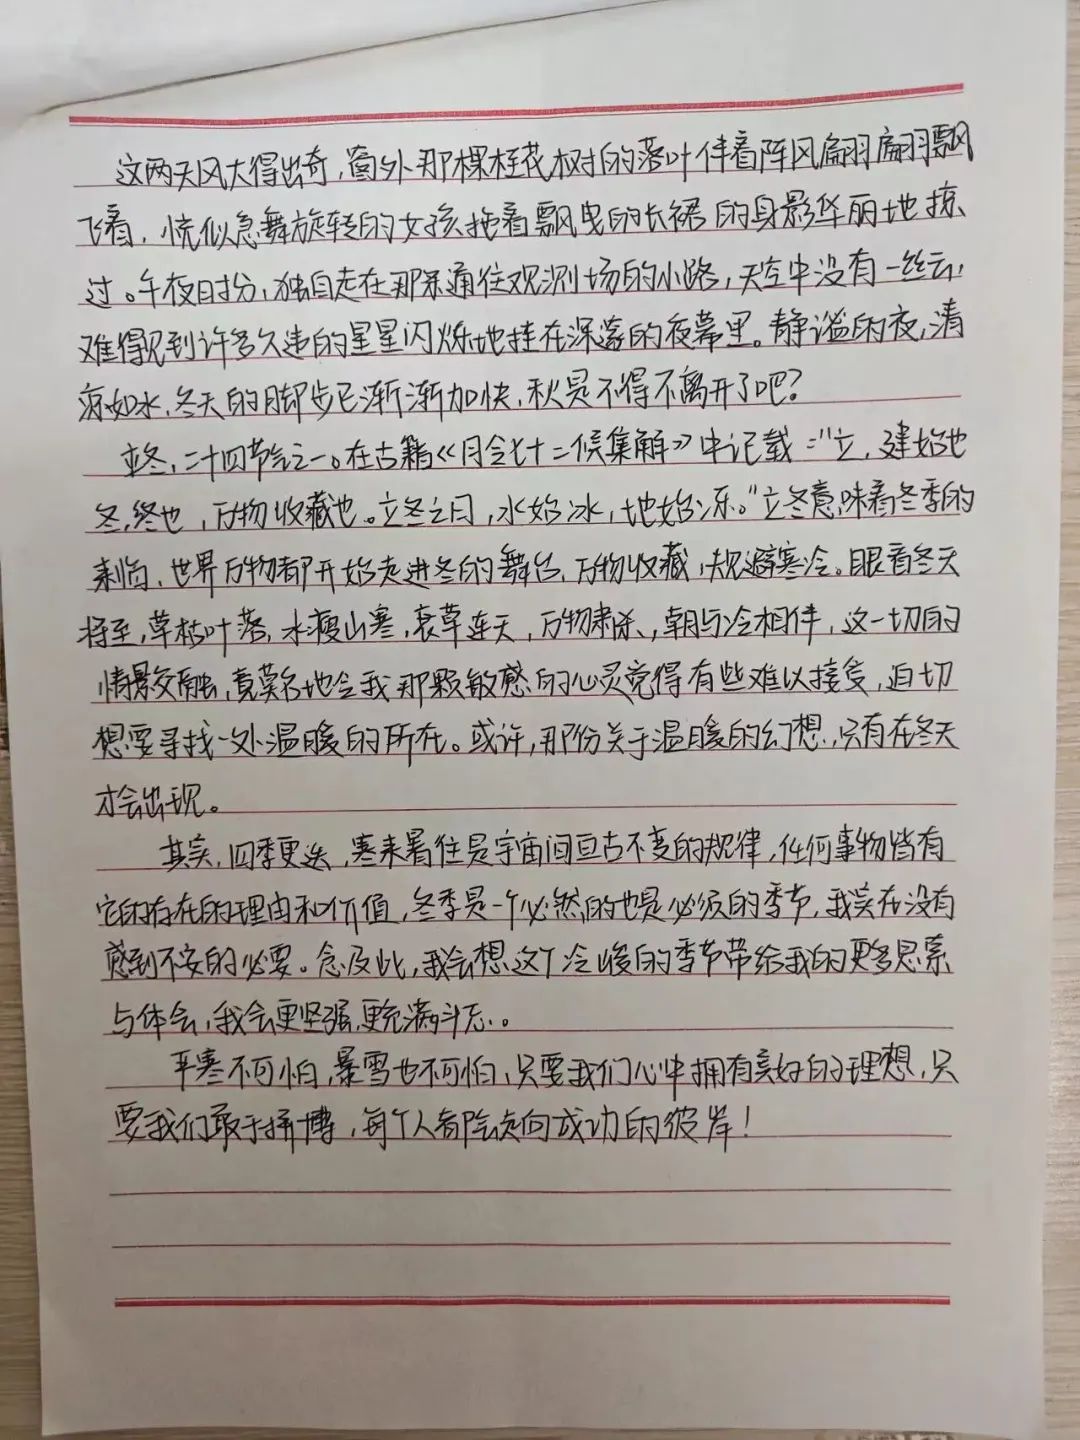 这两天风大得出奇，窗外那棵桂花树的落叶伴着阵风翩翩飘
飞着，恍似急舞旋转的女孩拖着飘曳的长裙的身影华丽地掠
过。午夜时分，独自走在那条通往观测场的小路，天空中没有一丝云，
难得见到许多久违的星星闪烁地挂在深邃的夜幕里。静谧的夜，清
凉如水，冬天的脚步已渐渐加快，秋是不得不离开了吧？
立冬，二十四节气之一。在古籍《月令七十二候集解》中记载："立，建始也
冬，终也，万物收藏也。立冬之日，水始冰，地始冻。"立冬意味着冬季的
来临，世界万物都开始走进冬的舞台，万物收藏，规避寒冷。眼看冬天
将至，草枯叶落，水瘦山寒，衰草连天，万物肃杀，朝与冷相伴，这一切的
情景交融，真莫名地令我那颗敏感的心灵觉得有些难以接受，迫切
想要寻找一处温暖的所在。或许，那份关于温暖的幻想，只有在冬天
才会出现。
其实，四季更迭，寒来暑往是宇宙间亘古不变的规律，任何事物皆有
它的存在的理由和价值，冬季是一个必然的也是必须的季节，我实在没有
感到不安的必要。念及此，我会想这个冷峻的季节带给我的更多思索
与体会，我会更坚强，更充满斗志。
严寒不可怕，暴雪也不可怕，只要我们心中拥有美好的理想，只
要我们敢于拼搏，每个人都会走向成功的彼岸！